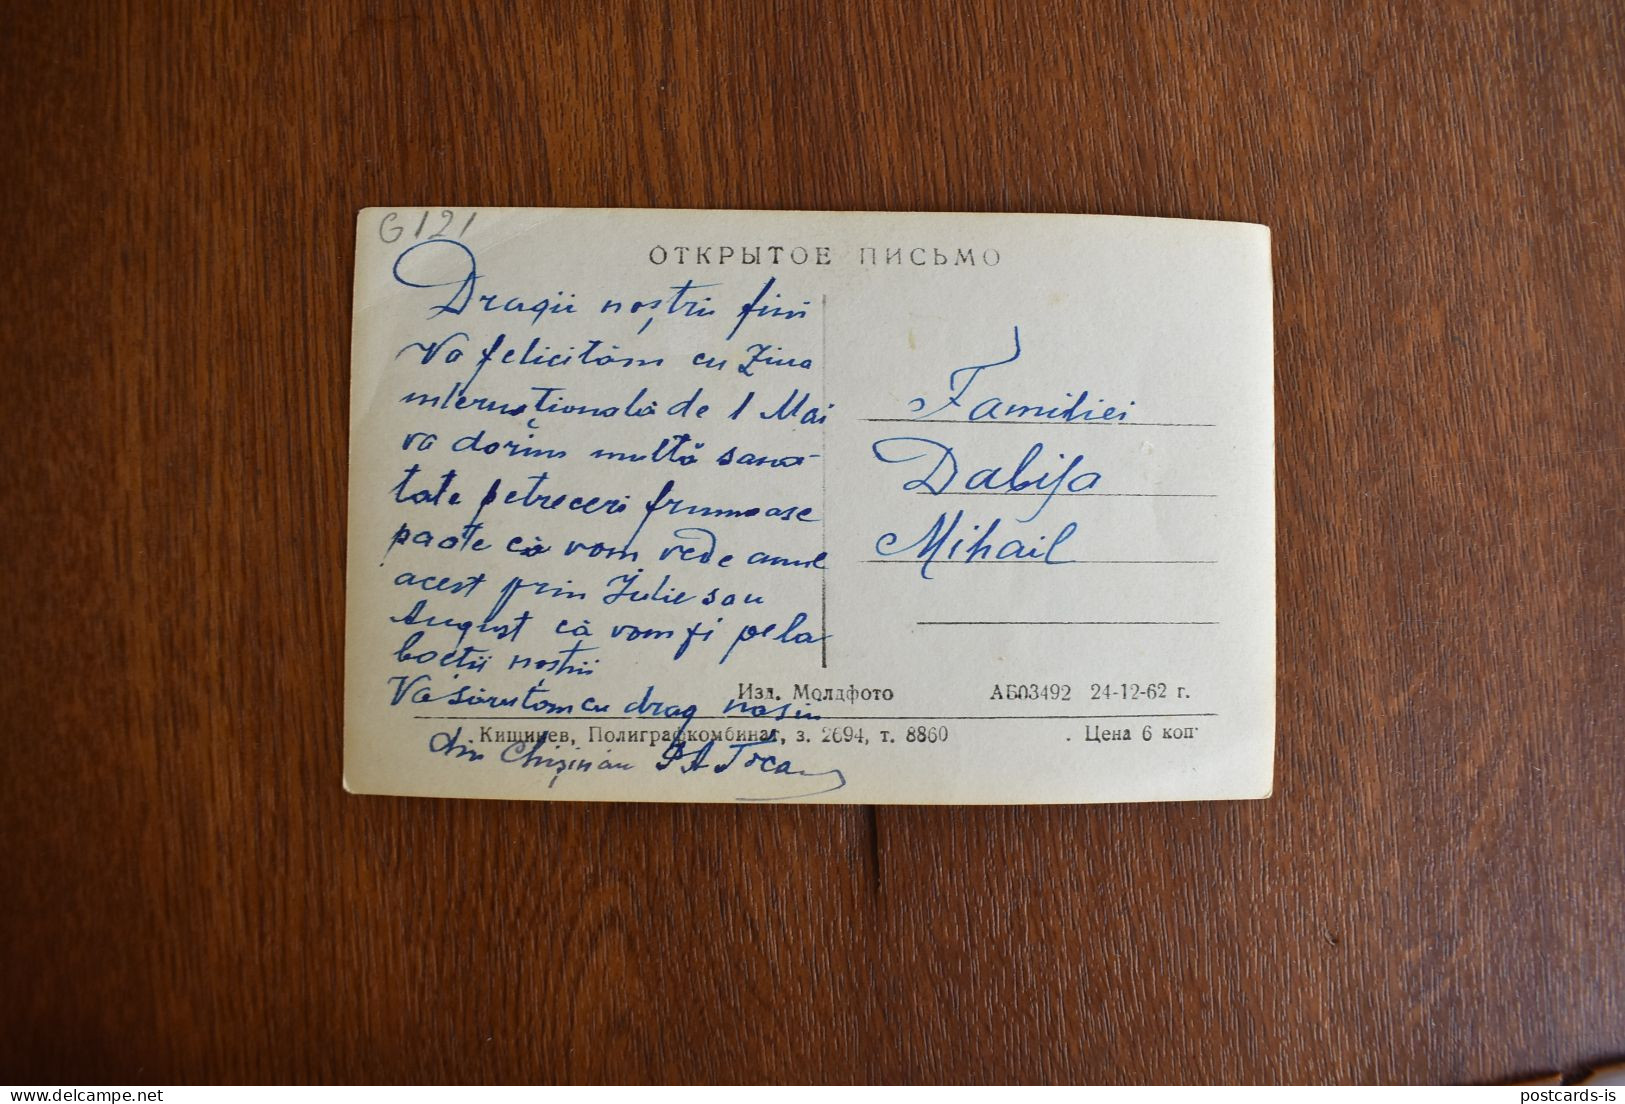 G121
ОТКРЫТОЕ ПИСЬМО
Dragii noștrii fini
Va felicităm cu Ziua
internațională de 1 Mai
va dorim multă sana-
tate petreceri frumoase
paate că vom vede anul
acest prin Iulie sau
August că vom fi pe la
baetii noștrii
Va sărutăm cu drag nașiu
din Chișinau
Familiei
Dabija
Mihail
Изд. Молдфото АБ03492 24-12-62 г.
Кишинев, Полиграфкомбинат, з. 2694, т. 8860 Цена 6 коп
postcards-is